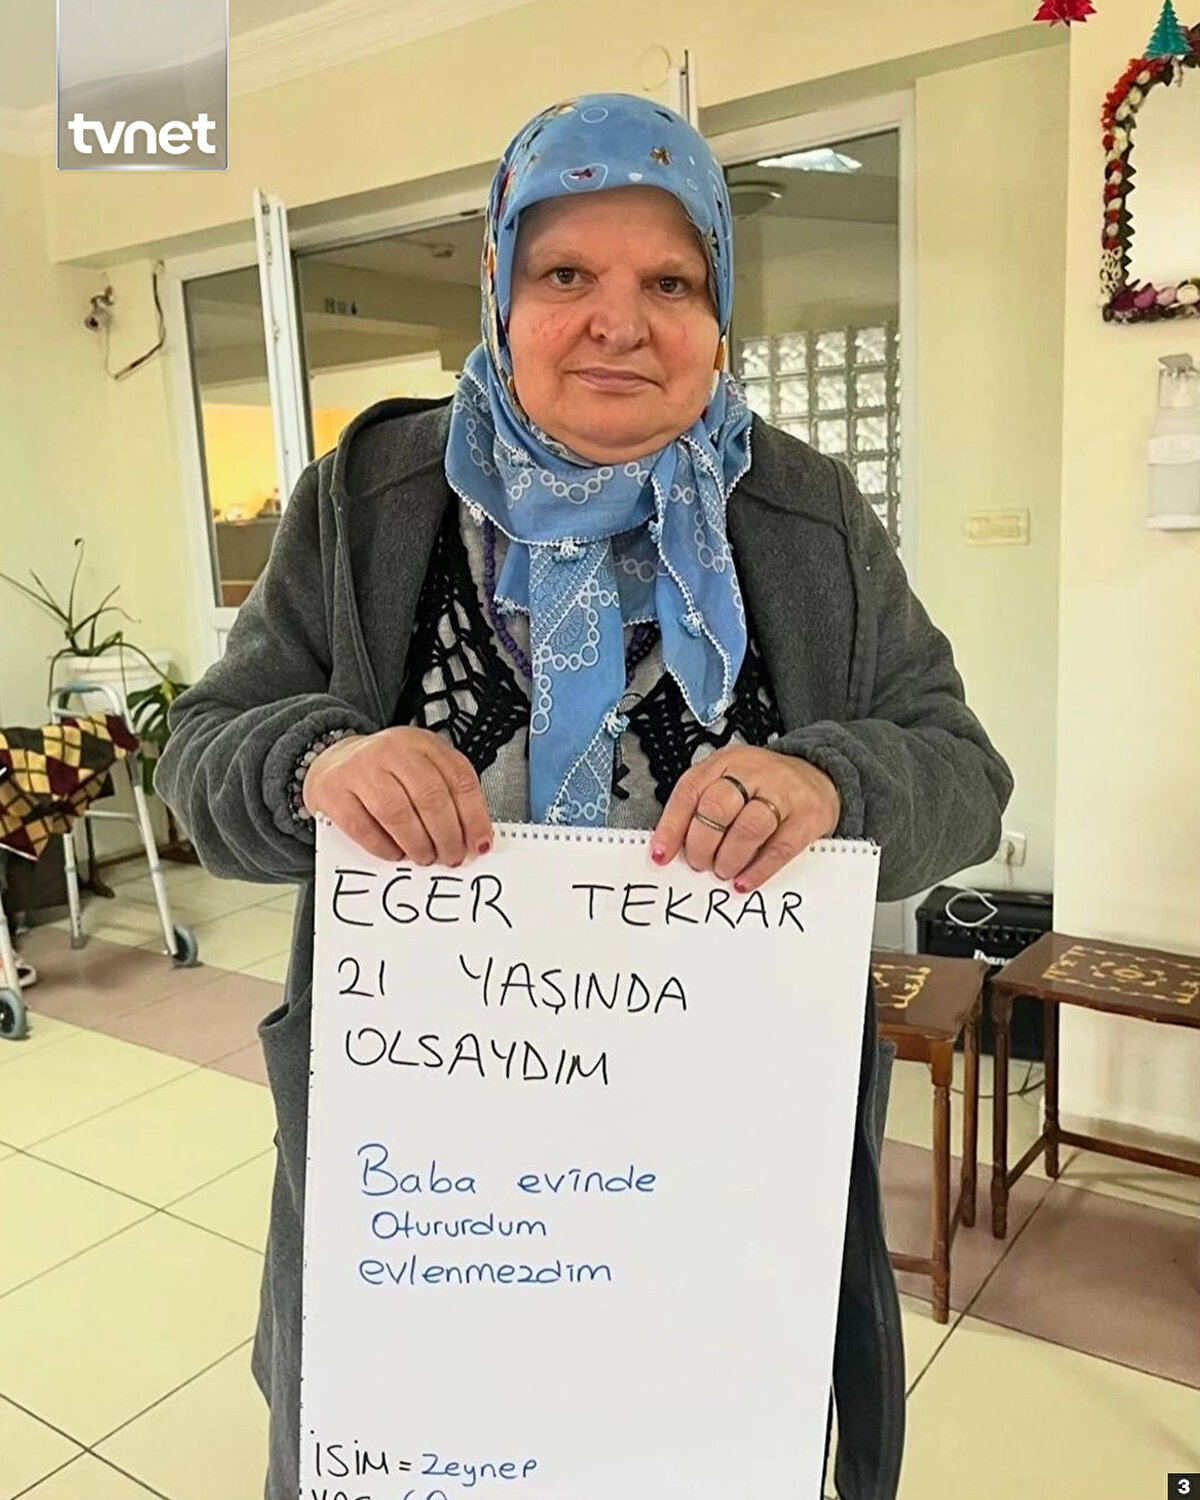 tvnet
EĞER TEKRAR
21 YAŞINDA
OLSAYDIM
Baba evinde
Otururdum
evlenmezdim
İSİM = Zeynep
3